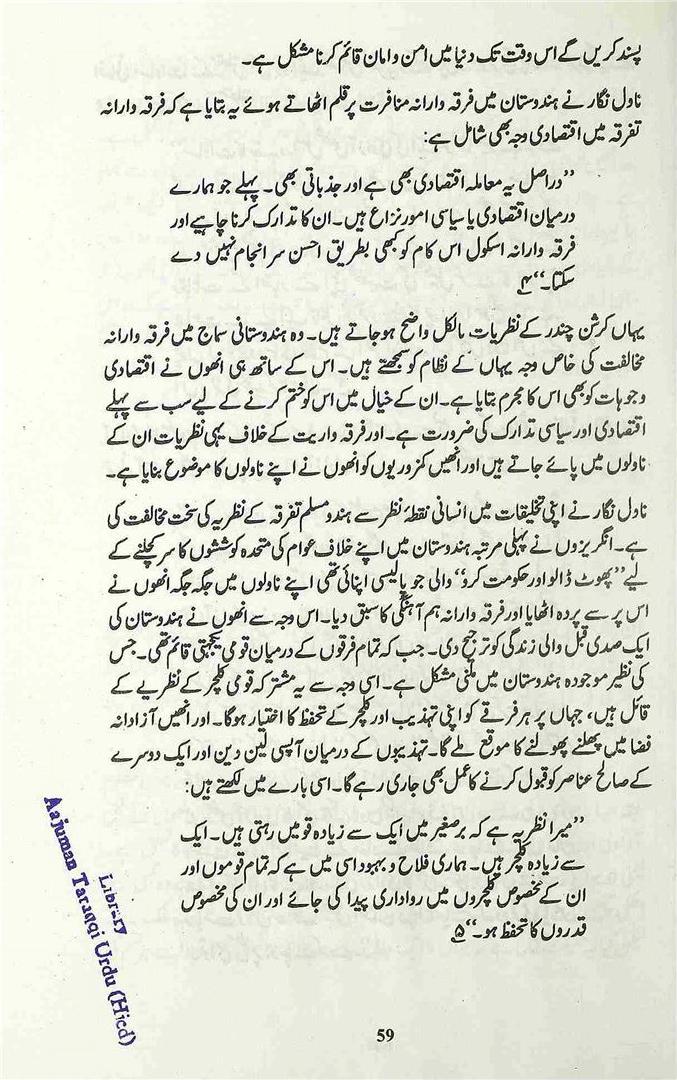 پسند کریں گے اس وقت تک دنیا میں امن و امان قائم کرنا مشکل ہے۔
ناول نگار نے ہندوستان میں فرقہ وارانہ منافرت پر قلم اٹھاتے ہوئے یہ بتایا ہے کہ فرقہ وارانہ
تفرقہ میں اقتصادی وجہ بھی شامل ہے:
”دراصل یہ معاملہ اقتصادی بھی ہے اور جذباتی بھی۔ پہلے جو ہمارے
درمیان اقتصادی یا سیاسی امور نزاع ہیں۔ ان کا تدارک کرنا چاہیے اور
فرقہ وارانہ اسکول اس کام کو کبھی بطریق احسن سرانجام نہیں دے
سکتا۔“ ۴
یہاں کرشن چندر کے نظریات بالکل واضح ہو جاتے ہیں۔ وہ ہندوستانی سماج میں فرقہ وارانہ
مخالفت کی خاص وجہ یہاں کے نظام کو سمجھتے ہیں۔ اس کے ساتھ ہی انھوں نے اقتصادی
وجوہات کو بھی اس کا مجرم بتایا ہے۔ ان کے خیال میں اس کو ختم کرنے کے لیے سب سے پہلے
اقتصادی اور سیاسی تدارک کی ضرورت ہے۔ اور فرقہ واریت کے خلاف یہی نظریات ان کے
ناولوں میں پائے جاتے ہیں اور انھیں کمزوریوں کو انھوں نے اپنے ناولوں کا موضوع بنایا ہے۔
ناول نگار نے اپنی تخلیقات میں انسانی نقطۂ نظر سے ہندو مسلم تفرقہ کے نظریہ کی سخت مخالفت کی
ہے۔ انگریزوں نے پہلی مرتبہ ہندوستان میں اپنے خلاف عوام کی متحدہ کوششوں کا سر کچلنے کے
لیے ”پھوٹ ڈالو اور حکومت کرو“ والی جو پالیسی اپنائی تھی اپنے ناولوں میں جگہ جگہ انھوں نے
اس پر سے پردہ اٹھایا اور فرقہ وارانہ ہم آہنگی کا سبق دیا۔ اس وجہ سے انھوں نے ہندوستان کی
ایک صدی قبل والی زندگی کو ترجیح دی۔ جب کہ تمام فرقوں کے درمیان قومی یکجہتی قائم تھی۔ جس
کی نظیر موجودہ ہندوستان میں ملنی مشکل ہے۔ اسی وجہ سے یہ مشترکہ قومی کلچر کے نظریے کے
قائل ہیں، جہاں پر ہر فرقے کو اپنی تہذیب اور کلچر کے تحفظ کا اختیار ہوگا۔ اور انھیں آزادانہ
فضا میں پھلنے پھولنے کا موقع ملے گا۔ تہذیبوں کے درمیان آپسی لین دین اور ایک دوسرے
کے صالح عناصر کو قبول کرنے کا عمل بھی جاری رہے گا۔ اسی بارے میں لکھتے ہیں:
”میرا نظریہ ہے کہ برصغیر میں ایک سے زیادہ قومیں رہتی ہیں۔ ایک
سے زیادہ کلچر ہیں۔ ہماری فلاح و بہبود اسی میں ہے کہ تمام قوموں اور
ان کے مخصوص کلچروں میں رواداری پیدا کی جائے اور ان کی مخصوص
قدروں کا تحفظ ہو۔“ ۵
Library
Aajuman Taraqqi Urdu (Hied)
59